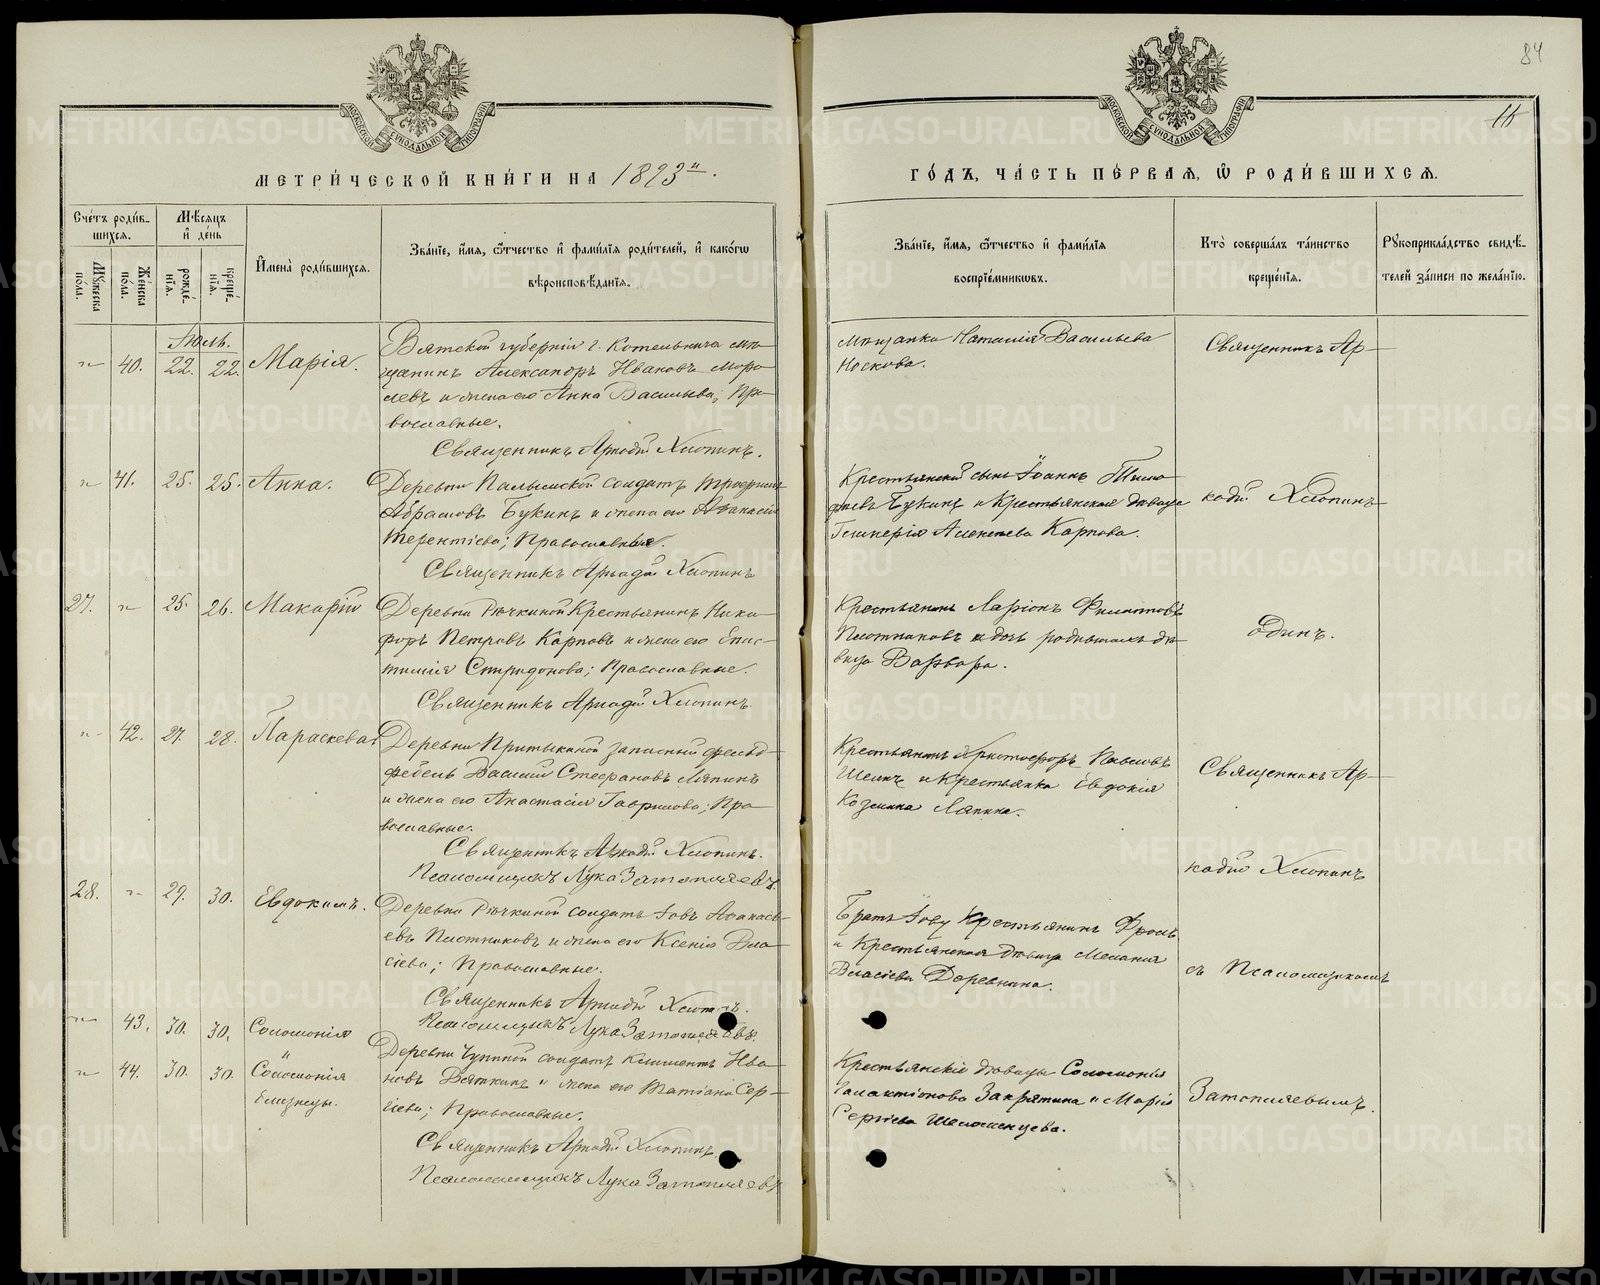 84
11
МОСКОВСКОЙ СѴНОДАЛЬНОЙ ТИПОГРАФІИ
МОСКОВСКОЙ СѴНОДАЛЬНОЙ ТИПОГРАФІИ
МЕТРИ́ЧЕСКОЙ КНИ́ГИ НА 1893й.
ГО́ДЪ, ЧА́СТЬ ПЕ́РВАѦ, Ѡ РОДИ́ВШИХСѦ.
Сче́тъ роди́в-
шихсѧ.
Мꙋ́жеска по́ла.
Же́нска по́ла.
Мѣ́сѧцъ и҆ де́нь
рожде́-
нїѧ.
креще́-
нїѧ.
И҆мена̀ роди́вшихсѧ.
Зва́нїе, и҆́мѧ, ѻ҆́тчество и҆ фами́лїѧ роди́телей, и҆ како́гѡ
вѣроисповѣ́данїѧ.
Зва́нїе, и҆́мѧ, ѻ҆́тчество и҆ фами́лїѧ
воспрїе́мникѡвъ.
Кто̀ соверша́лъ та́инство
креще́нїѧ.
Рꙋкоприкла́дство свидѣ́-
телей за́писи по жела́нїю.
Іюль.
" 40. 22. 22. Марія.
Вятской губерніи г. Котельнича мѣ-
щанинъ Александръ Ивановъ
и жена его Анна Васильева; Пра-
вославные.
Священникъ Аркадій Хлопинъ.
Мѣщанка Наталія Васильева
Носкова.
Священникъ Ар-
" 41. 25. 25. Анна.
Деревни солдатъ
Абрамовъ Букинъ и жена его Афанасія
Терентіева; Православные.
Священникъ Аркадій Хлопинъ
Крестьянскій сынъ Іоаннъ
Букинъ и Крестьянская дѣвица
Алексѣева Карпова.
кадій Хлопинъ
27. " 25. 26. Макарій
Деревни Рѣчкиной Крестьянинъ Ники-
форъ Петровъ Карповъ и жена его Епис-
тимія Спиридонова; Православные.
Священникъ Аркадій Хлопинъ.
Крестьянинъ Ларіонъ Филатовъ
Плотниковъ и дочь родившихъ дѣ-
вица Варвара.
одинъ.
" 42. 27. 28. Параскева
Деревни Притыкиной запасный фельд-
фебель Василій Стефановъ Ляпинъ
и жена его Анастасія Гаврилова; Пра-
вославные.
Священникъ Аркадій Хлопинъ.
Псаломщикъ Лука Затопляевъ
Крестьянинъ Христофоръ Павловъ
и Крестьянка Евдокія
Козмина Ляпина.
Священникъ Ар-
кадій Хлопинъ
28. " 29. 30. Евдокимъ.
Деревни Рѣчкиной солдатъ Іовъ Афанась-
евъ Плотниковъ и жена его Ксенія Вла-
сіева; Православные.
Священникъ Аркадій
Псаломщикъ Лука Затопляевъ.
Братъ Іову Крестьянинъ Фролъ
и Крестьянская дѣвица Меланія
Власіева Деревнина.
съ Псаломщикомъ
" 43. 30. 30. Соломонія
и
" 44. 30. 30. Соломонія
близнецы.
Деревни солдатъ Климентъ Ива-
новъ Вяткинъ и жена его Татіана Сер-
гіева; Православные.
Священникъ Аркадій Хлопинъ
Псаломщикъ Лука Затопляевъ
Крестьянскіе дѣвицы Соломонія
Галактіонова Закрятина и Марія
Сергіева Шеломенцева.
Затопляевымъ.
METRIKI.GASO-URAL.RU